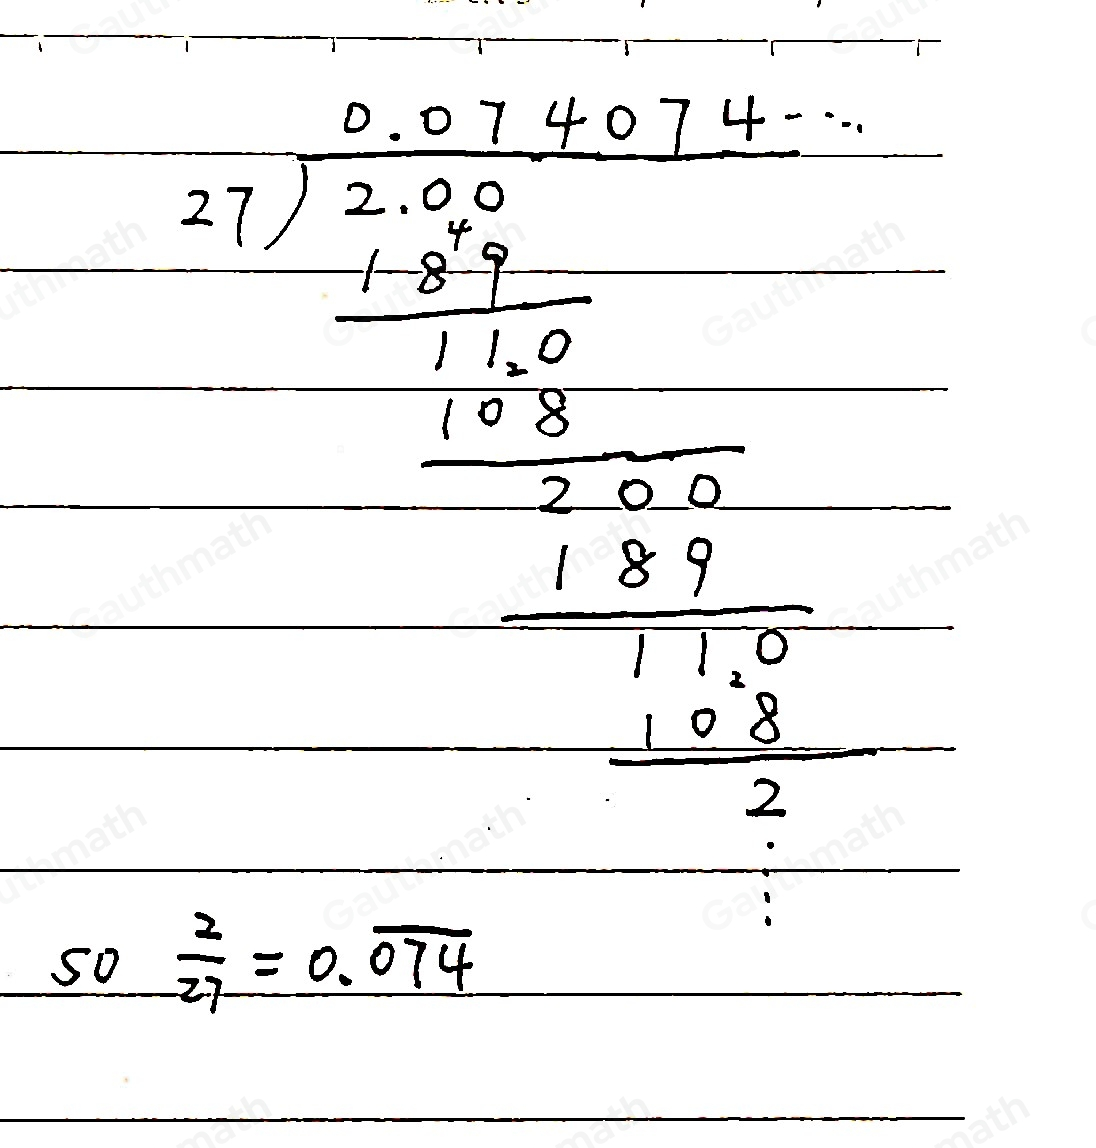 0.074074-...
27) 2.00
4
189
11 0
2
108
200
189
11 0
2
108
2
so 2/27 = 0.074̅